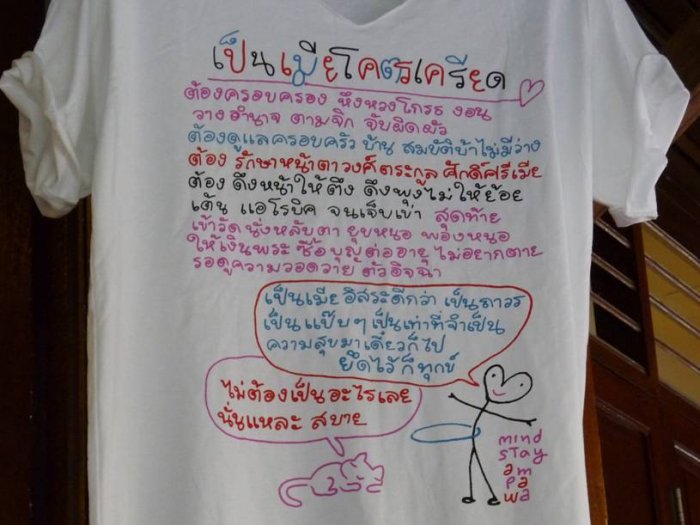 เป็นเมียโคตรเครียด
ต้องครอบครอง หึงหวงโกรธ งอน
วางอำนาจ ตามจิก จับผิดผัว
ต้องดูแลครอบครัว บ้าน สมบัติบ้าไม่มีว่าง
ต้อง รักษาหน้าตาวงศ์ตระกูล ศักดิ์ศรีเมีย
ต้อง ดึงหน้าให้ตึง ดึงพุงไม่ให้ย้อย
เต้น แอโรบิค จนเจ็บเข่า สุดท้าย
เข้าวัด นั่งหลับตา ยุบหนอ พองหนอ
ให้เงินพระ ซื้อบุญต่ออายุ ไม่อยากตาย
รอดูความวอดวาย ตัวอิจฉา
เป็นเมียอิสระดีกว่า เป็นถาวร
เป็น แป๊บๆ เป็นเท่าที่จำเป็น
ความสุขมาเดี๋ยวก็ไป
ยึดไว้ ก็ทุกข์
ไม่ต้องเป็นอะไรเลย
นั่นแหละ สบาย
mind
STay
am
Pa
wa